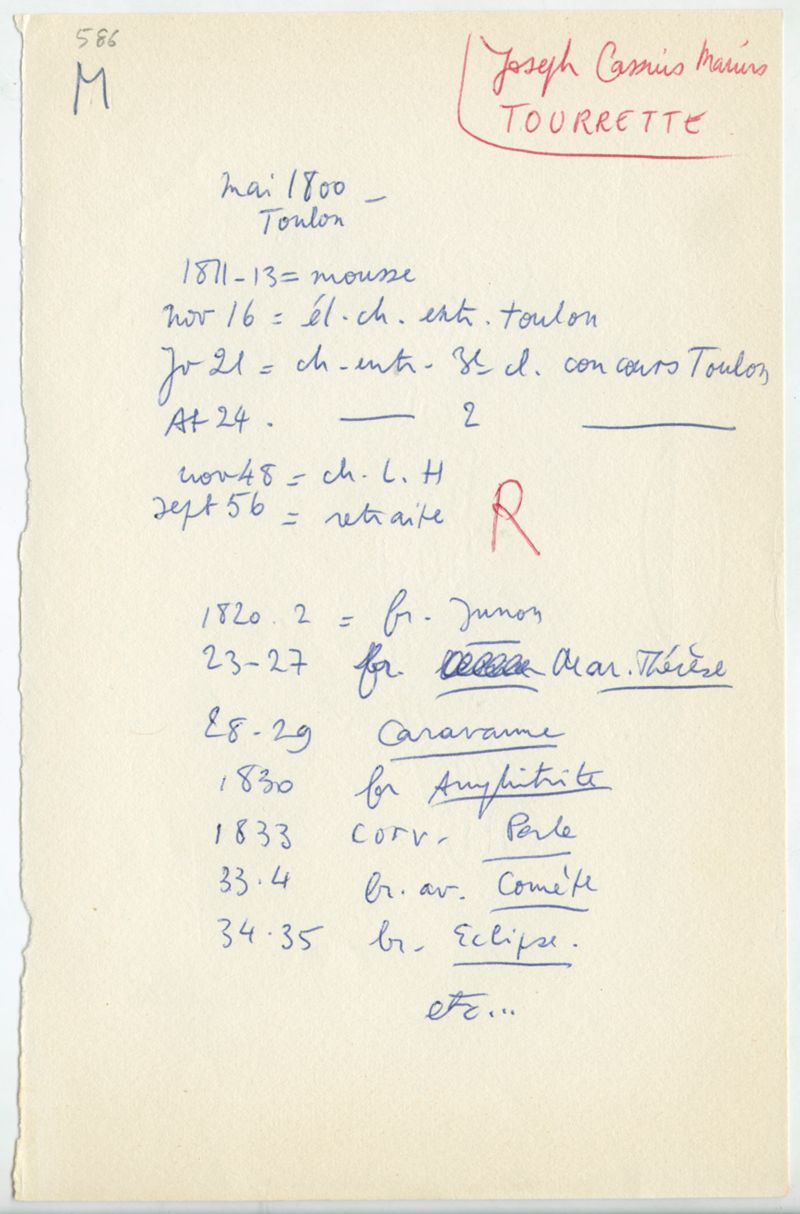 586
M
Joseph Cassius Marius
TOURRETTE
mai 1800 –
Toulon
1811-13 = mousse
nov 16 = él. ch. entr. toulon
Jv 21 = ch-entr- 3e cl. concours Toulon
At 24 . —— 2 ——
nov 48 = ch. L. H
sept 56 = retraite
R
1820. 2 = fr. Junon
23-27 fr. Mar. Thérèse
28-29 Caravanne
1830 fr Amphitrite
1833 corv. Perle
33.4 br. av. Comète
34.35 br. Eclipse.
etc...